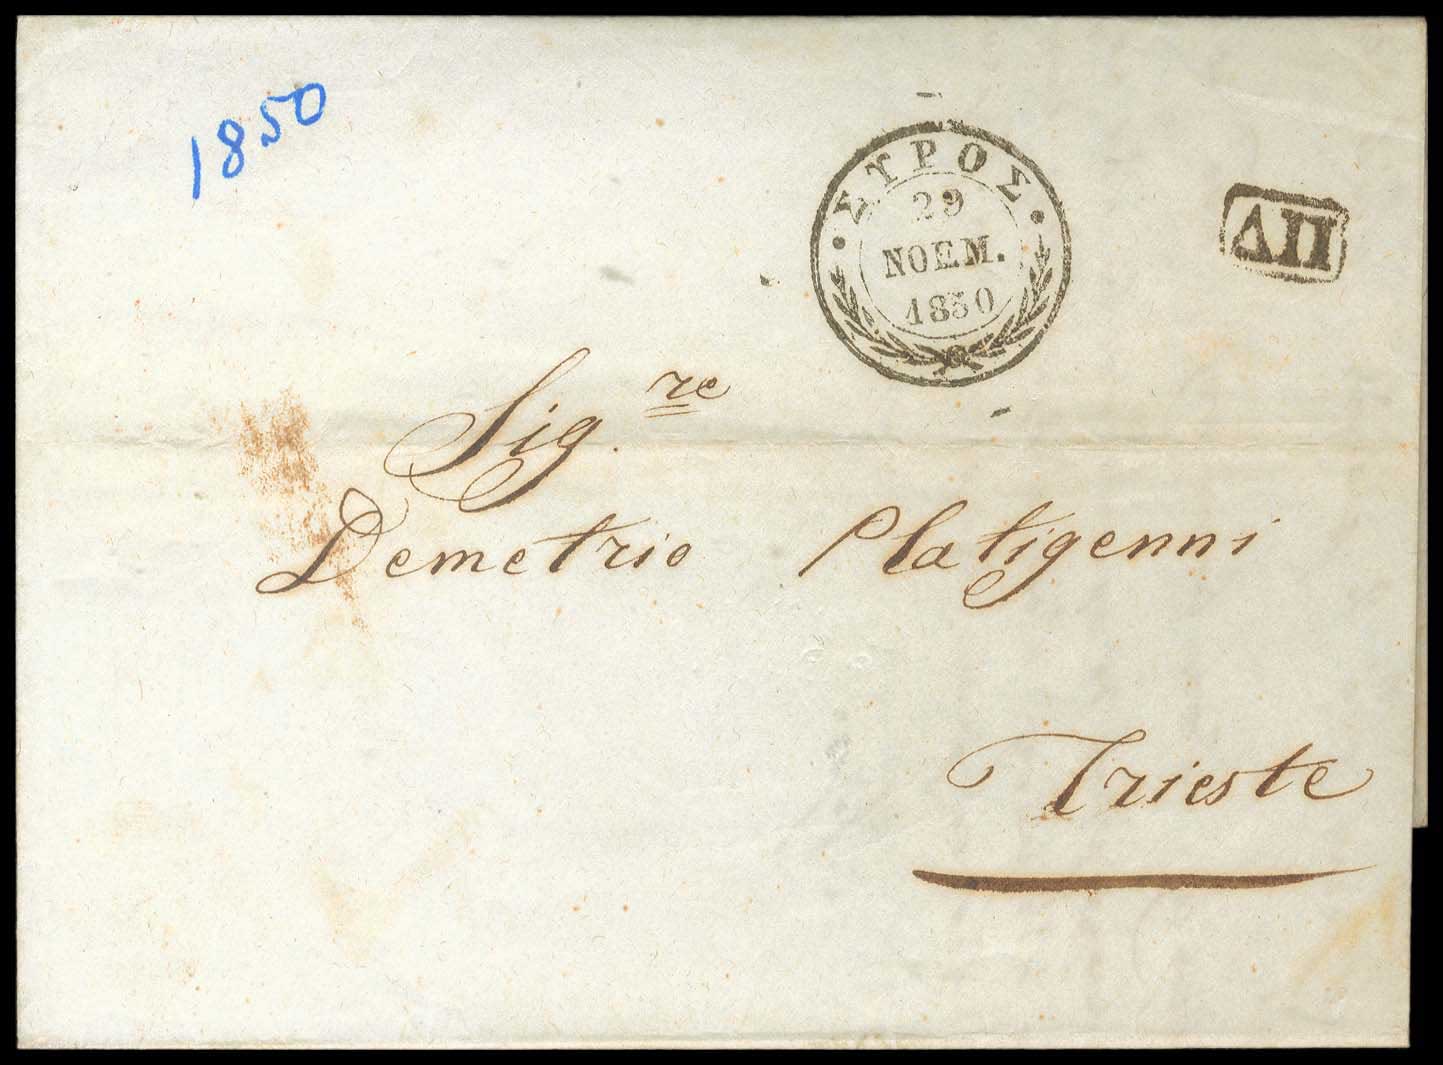 1850
ΣΥΡΟΣ
29
ΝΟΕΜ.
1850
ΔΠ
Sig.re
Demetrio Platigenni
Trieste